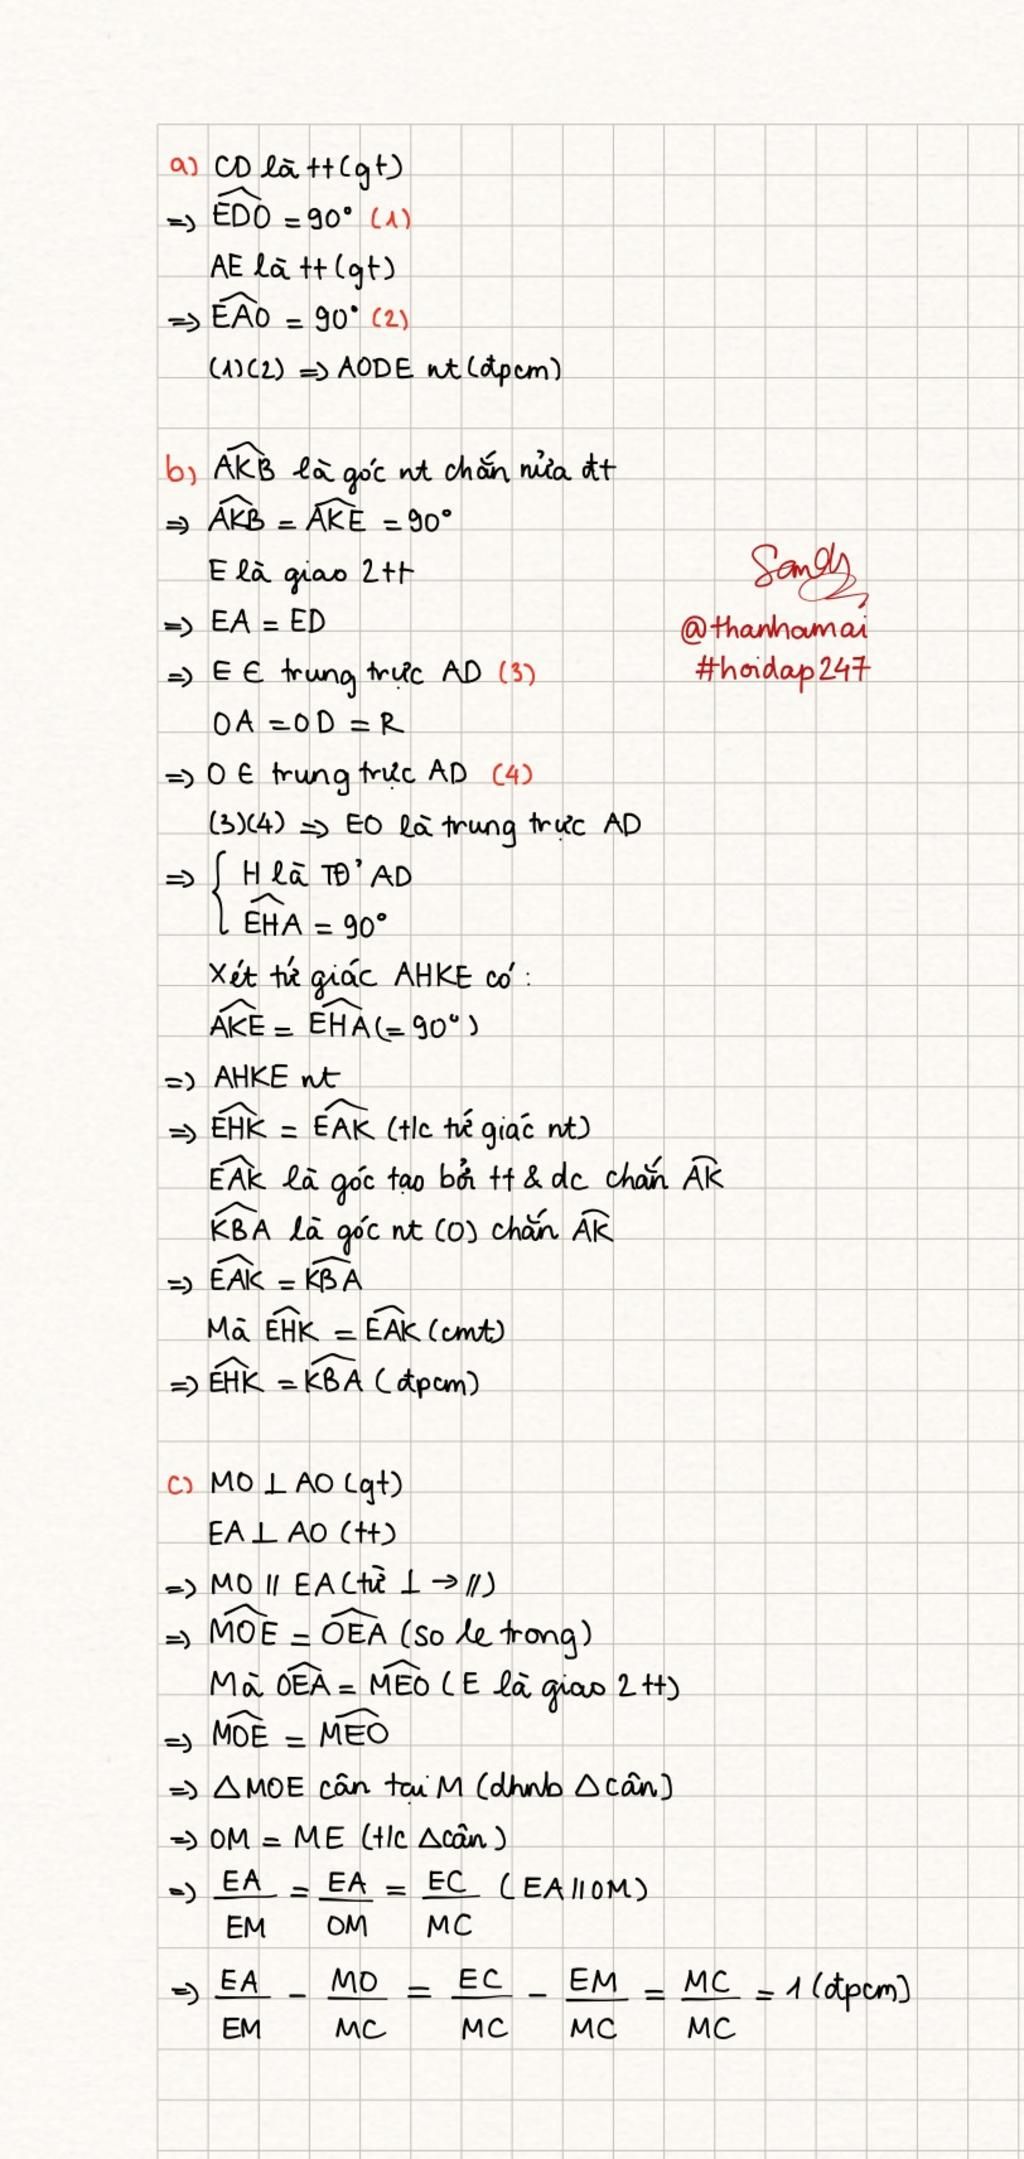 a) CD là tt (gt)
=> EDO = 90° (1)
AE là tt (gt)
=> EAO = 90° (2)
(1)(2) => AODE nt (đpcm)
b) AKB là góc nt chắn nửa đt
=> AKB = AKE = 90°
E là giao 2 tt
=> EA = ED
=> E ∈ trung trực AD (3)
OA = OD = R
=> O ∈ trung trực AD (4)
(3)(4) => EO là trung trực AD
=> { H là TĐ' AD
EHA = 90°
Xét tứ giác AHKE có:
AKE = EHA (= 90°)
=> AHKE nt
=> EHK = EAK (t/c tứ giác nt)
EAK là góc tạo bởi tt & dc chắn AK
KBA là góc nt (O) chắn AK
=> EAK = KBA
Mà EHK = EAK (cmt)
=> EHK = KBA (đpcm)
Sandy
@thanhamai
#hoidap247
c) MO ⊥ AO (gt)
EA ⊥ AO (tt)
=> MO // EA (từ ⊥ → //)
=> MOE = OEA (so le trong)
Mà OEA = MEO (E là giao 2 tt)
=> MOE = MEO
=> △MOE cân tại M (dhnb △ cân)
=> OM = ME (t/c △cân)
=> EA/EM = EA/OM = EC/MC (EA // OM)
=> EA/EM - MO/MC = EC/MC - EM/MC = MC/MC = 1 (đpcm)